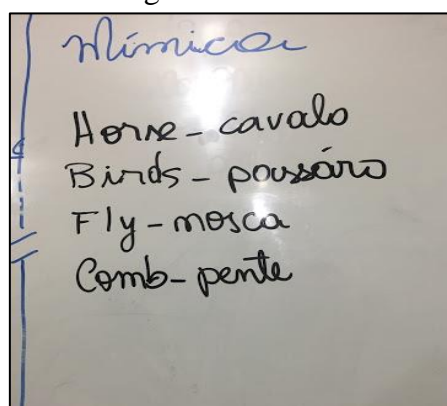 Mímica
Horse - cavalo
Birds - passáro
Fly - mosca
Comb - pente